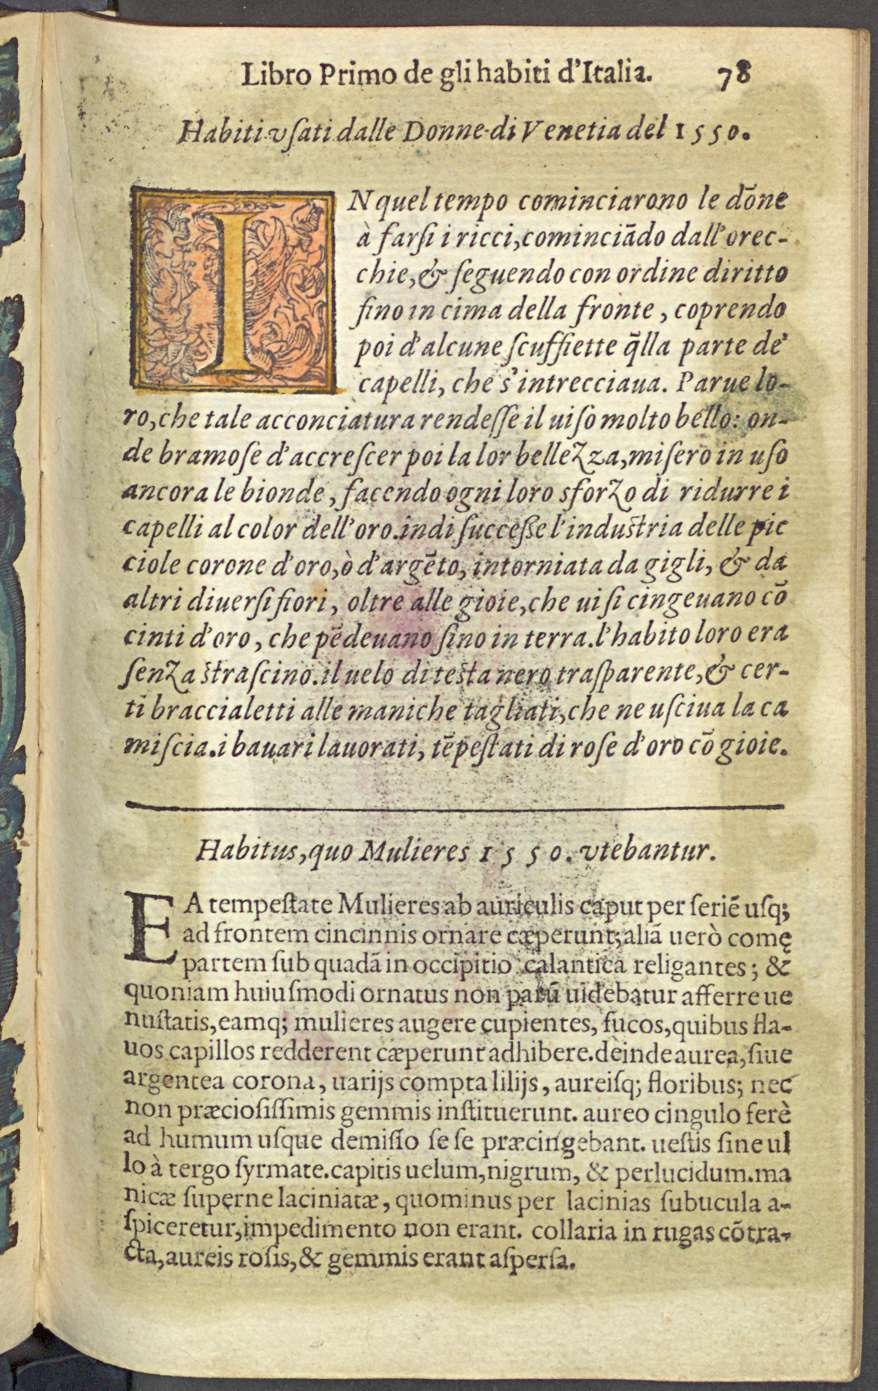 Libro Primo de gli habiti d'Italia. 78
Habiti vſati dalle Donne di Venetia del 1550.
IN quel tempo cominciarono le dõne
à farſi i ricci,cominciãdo dall'orec-
chie,& ſeguendo con ordine diritto
ſino in cima della fronte, coprendo
poi d'alcune ſcuffiette q̃lla parte de'
capelli, che s'intrecciaua. Parue lo-
ro,che tale acconciatura rendeſſe il uiſo molto bello: on-
de bramoſe d'accreſcer poi la lor belleZza,miſero in uſo
ancora le bionde, facendo ogni loro sforZo di ridurre i
capelli al color dell'oro.indi ſucceſſe l'induſtria delle pic
ciole corone d'oro,ò d'argẽto, intorniata da gigli, & da
altri diuerſi fiori, oltre alle gioie,che ui ſi cingeuano cõ
cinti d'oro, che pẽdeuano ſino in terra.l'habito loro era
ſenZa ſtraſcino.il uelo di teſta nero traſparente,& cer-
ti braccialetti alle maniche tagliati,che ne uſciua la ca
miſcia.i bauari lauorati, tẽpeſtati di roſe d'oro cõ gioie.
Habitus,quo Mulieres 1550. vtebantur.
EA tempeſtate Mulieres ab auriculis caput per ſeriẽ uſq;
ad frontem cincinnis ornare cæperunt;aliã uerò comę
partem ſub quadã in occipitio calantica religantes; &
quoniam huiuſmodi ornatus non parũ uidebatur afferre ue
nuſtatis,eamq; mulieres augere cupientes, fucos,quibus fla-
uos capillos redderent cæperunt adhibere.deinde aurea,ſiue
argentea corona, uarijs compta lilijs, aureiſq; floribus; nec
non præcioſiſſimis gemmis inſtituerunt. aureo cingulo ferè
ad humum uſque demiſſo ſe ſe præcingebant. ueſtis ſine ul
lo à tergo ſyrmate.capitis uelum,nigrum, & perlucidum.ma
nicæ ſuperne laciniatæ, quominus per lacinias ſubucula a-
ſpiceretur,impedimento non erant. collaria in rugas cõtra-
cta,aureis roſis,& gemmis erant aſperſa.